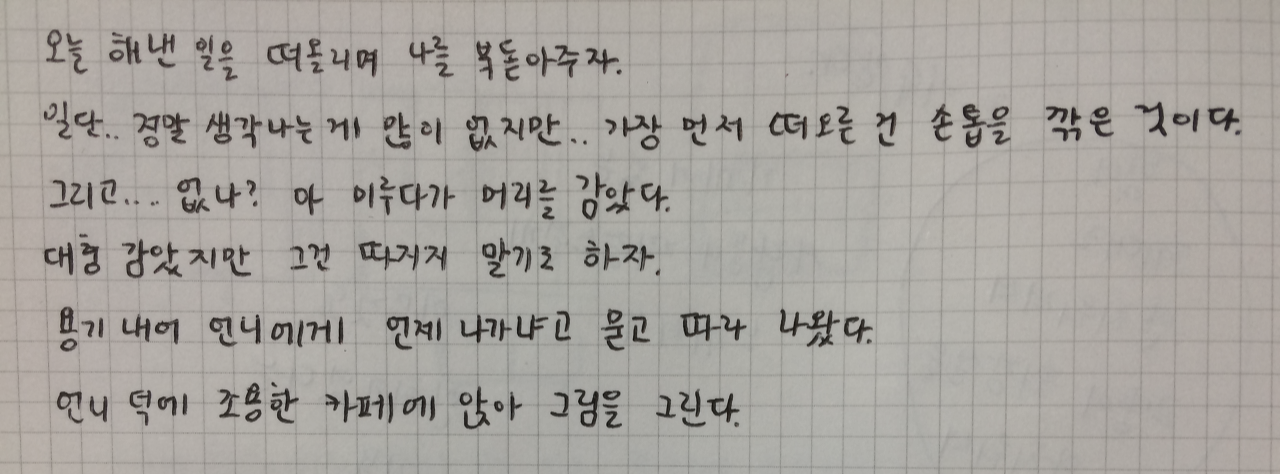 오늘 해낸 일을 떠올리며 나를 북돋아주자.
일단.. 정말 생각나는 게 많이 없지만.. 가장 먼저 떠오른 건 손톱을 깎은 것이다.
그리고.... 없나? 아 미루다가 머리를 감았다.
대충 감았지만 그건 따지지 말기로 하자.
용기 내어 언니에게 언제 나가냐고 묻고 따라 나왔다.
언니 덕에 조용한 카페에 앉아 그림을 그린다.